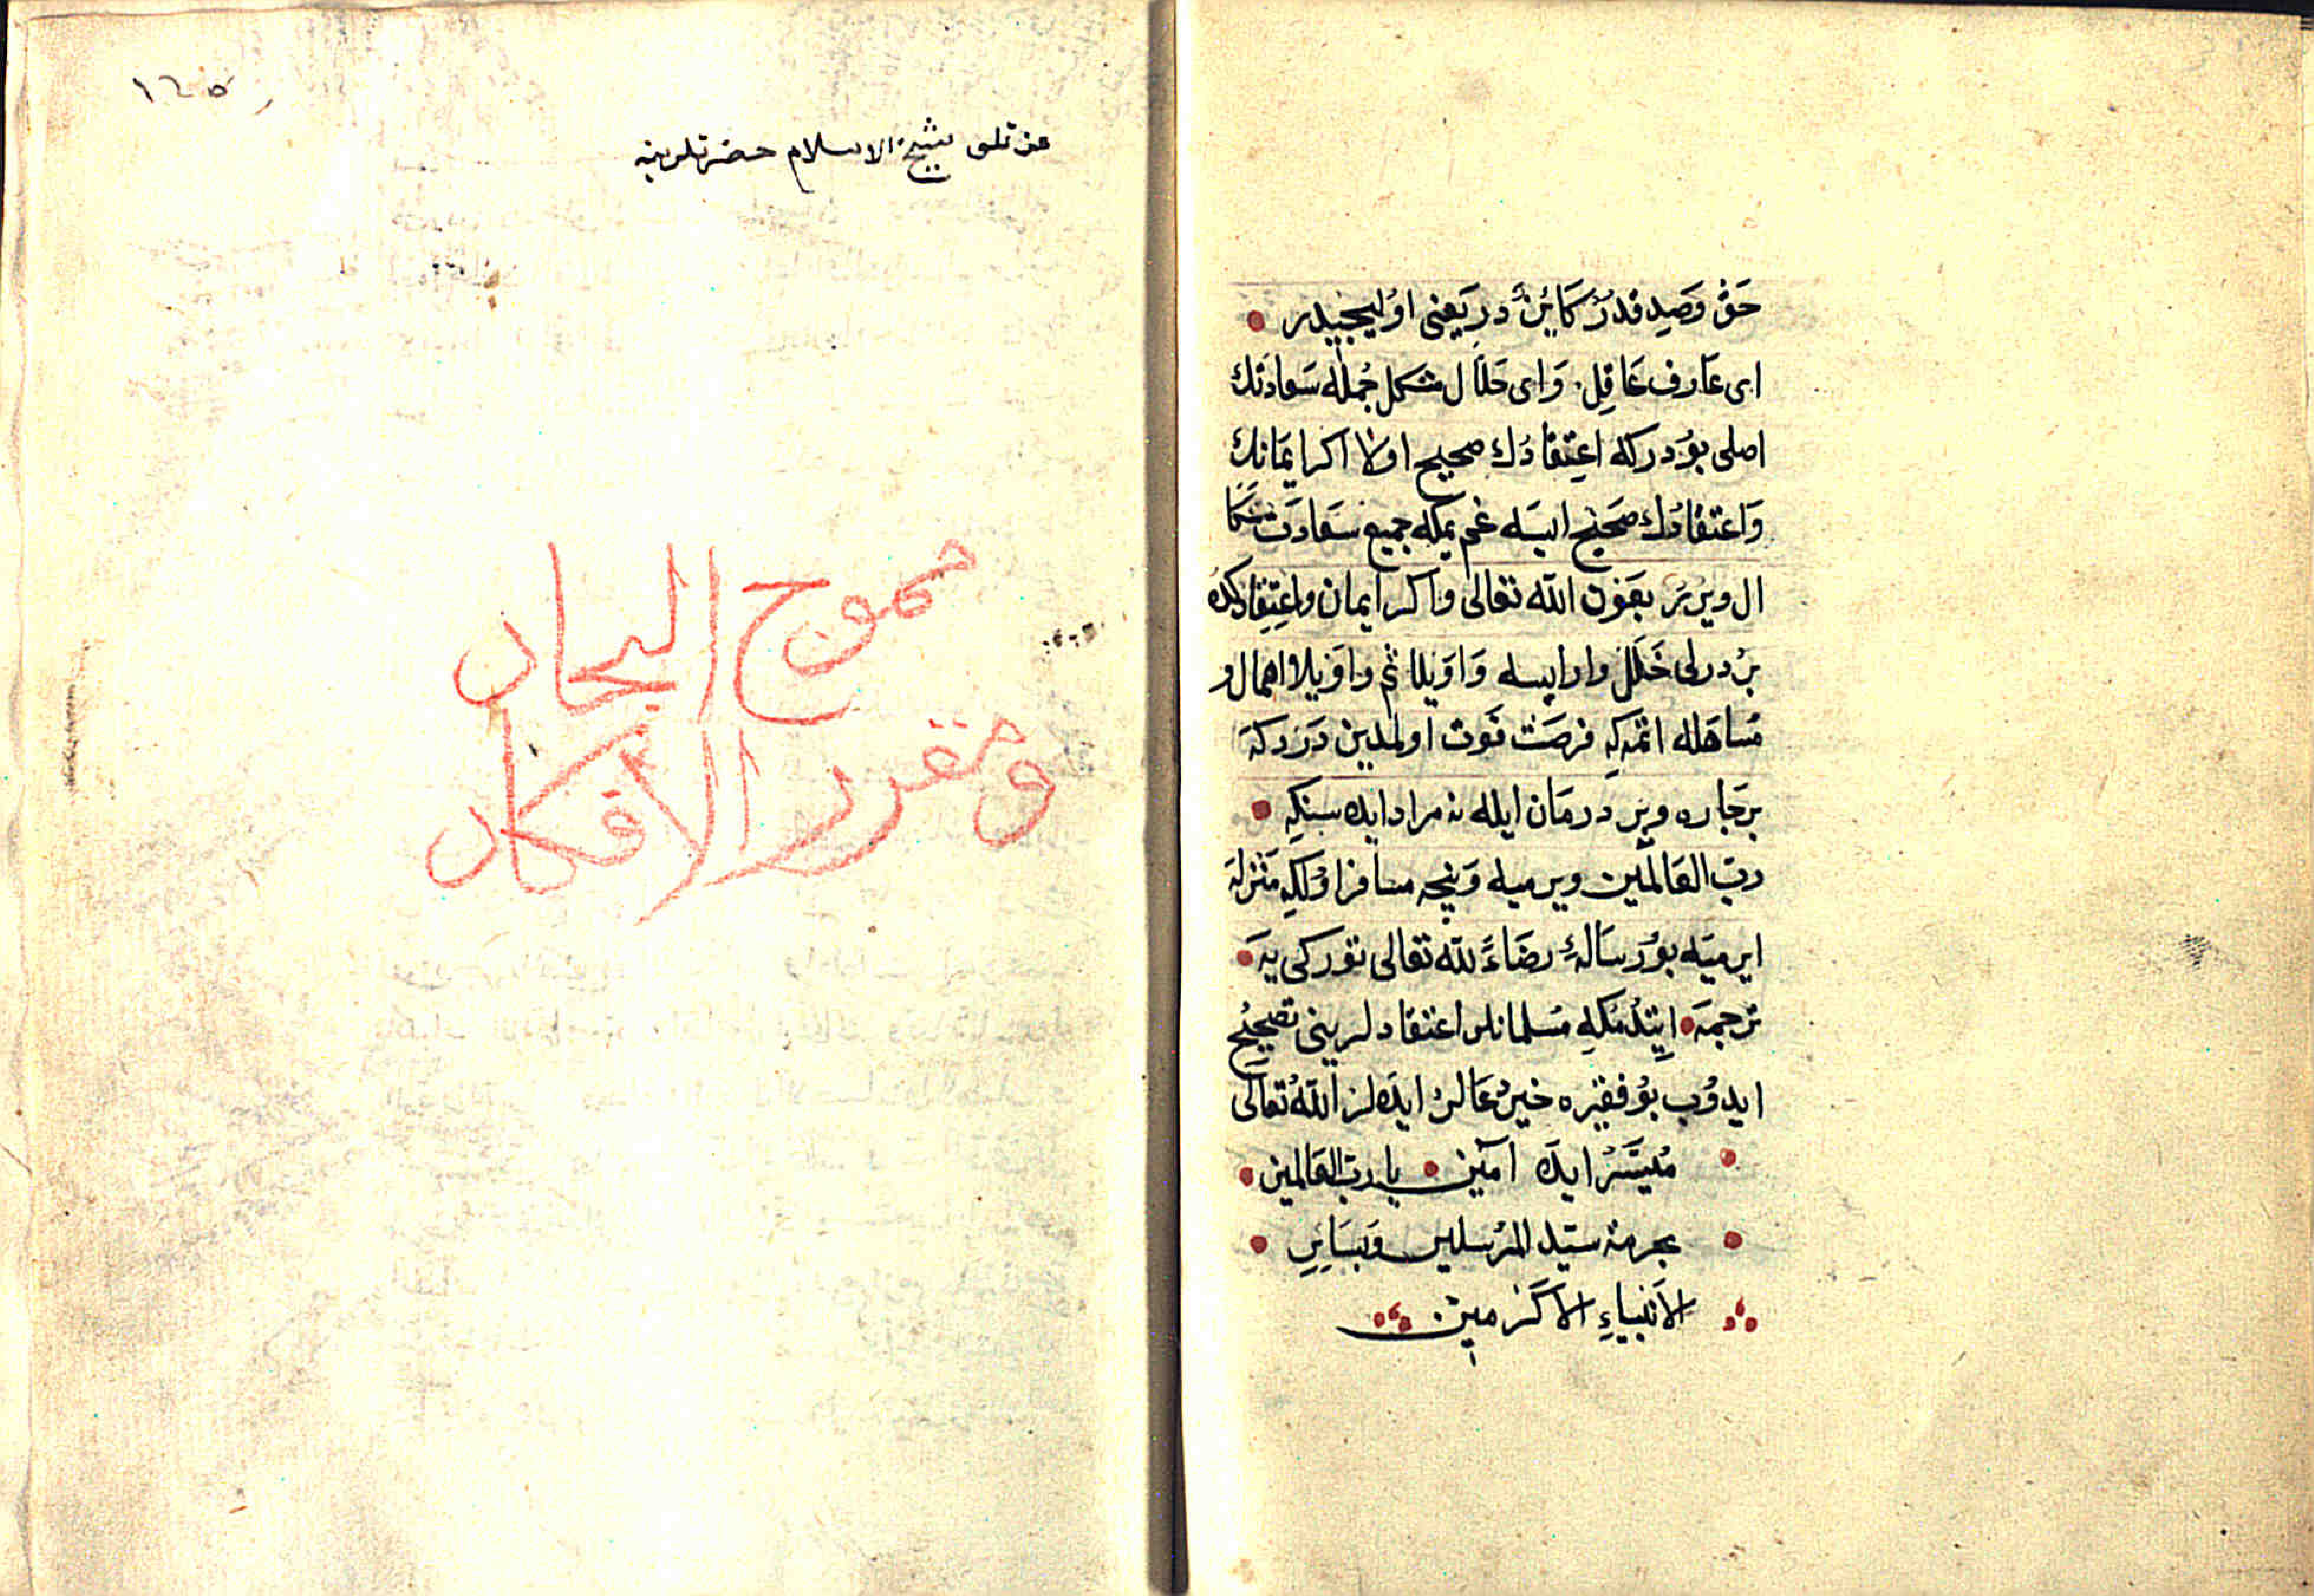 حَقّ وَصِدِقدُرْ كَائِنْ دِر يَعنِى اوُليجيدر
اى عَارف عَاقِل وَاى حَلاَّل مشكل جُمله سَعادتك
اصلى بوُدركه اعِتِقادُك صحيح اولا اكر ايمَانك
وَاعتقادُك صَحِيح ايسَه غم يمَه جميع سَعادَت سَكَا
ال ويرر بعَون الله تعالى واكر ايمان واعِتِقادكده
بُر درلى خَلَل وار ايسه وَاوَيلا ثم واوَيلا اهمال و
مُسَاهَله اتمه كه فرصَت فَوت اولمدين دَرْدكَه
برچاره وير درمَان ايله نه مراد ايده سنكه
رب العَالَمين ويرميه وَنيجه مسافر اوُله كه مَنْزله
ايرميَه بوُ رسَالَهِ رضَاءً لله تعَالى توركى يَه
ترجمَه ايتدُمكه مُسلمانلر اعتقادلرينى تصحيح
ايدوُب بوُ فقيره خيرُ عَالر ايدَه لر الله تعَالى
مُيَسَّرْ ايدَه آمين يا رب العَالمين
بحرمة سيّد المُرسلين وَبسَايِرِ
الاَنبياءِ الاَكرَمين
١٤٥
عزتلو شيخ الاسلام حضرتلرينه
مموج البحار
ومقرر الافكار